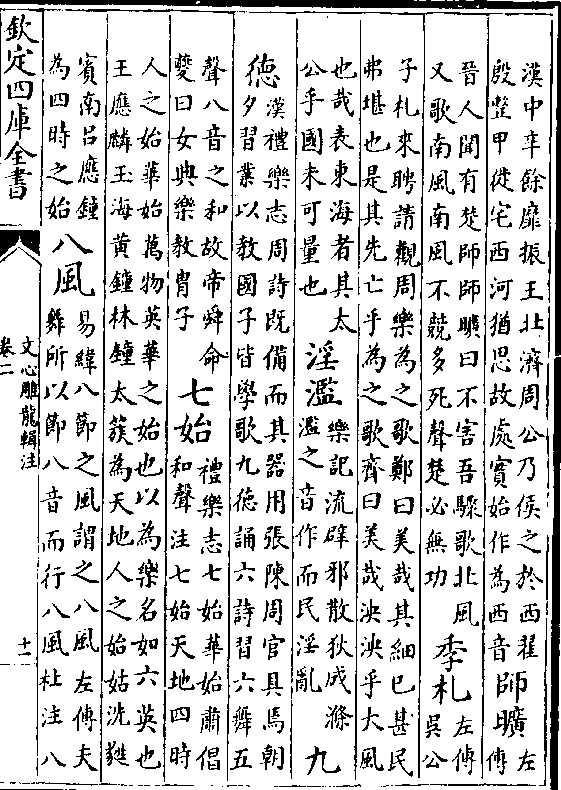 漢中辛餘靡振王北濟周公乃侯之於西翟
殷整甲徙宅西河猶思故處實始作為西音
師曠
左
傳
晉人聞有楚師師曠曰不害吾驟歌北風
又歌南風南風不競多死聲楚必無功
季札
左傳
吳公
子札來聘請觀周樂為之歌鄭曰美哉其細已甚民
弗堪也是其先亡乎為之歌齊曰美哉泱泱乎大風
也哉表東海者其太
公乎國未可量也
淫濫
樂記流辟邪散狄成滌
濫之音作而民淫亂
九
德
漢禮樂志周詩既備而其器用張陳周官具焉朝
夕習業以教國子皆學歌九德誦六詩習六舞五
聲八音之和故帝舜命
夔曰女典樂教胄子
七始
禮樂志七始華始肅倡
和聲注七始天地四時
人之始華始萬物英華之始也以為樂名如六英也
王應麟玉海黄鐘林鐘太蔟為天地人之始姑洗蕤
賓南呂應鐘
為四時之始
八風
易緯八節之風謂之八風左傳夫
舞所以節八音而行八風杜注八
欽定四庫全書
文心雕龍輯注
卷二
十一